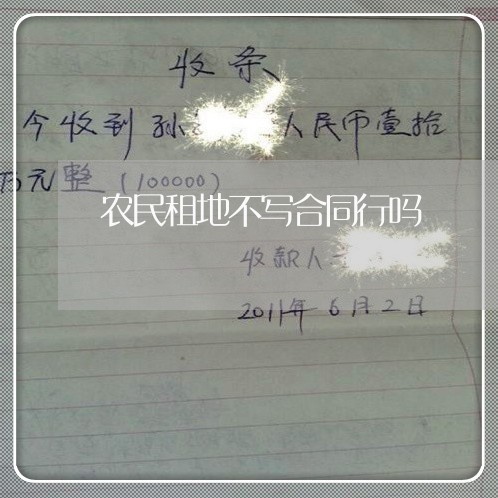 收条
今收到孙 人民币壹拾
万元整(100000)
农民租地不写合同行吗
收款人
2011年6月2日